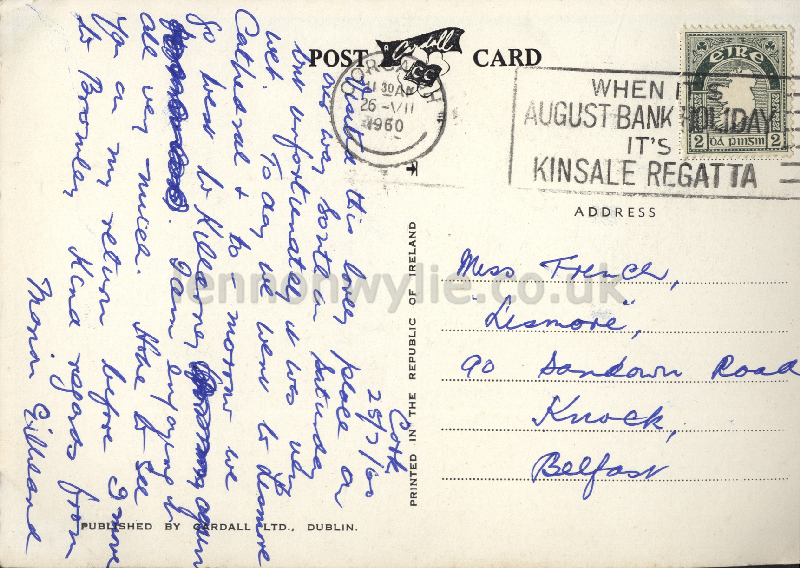 POST Cardall CARD
CORCAIGH
11 30 AM
26 -VII
1960
WHEN IT'S
AUGUST BANK HOLIDAY
IT'S
KINSALE REGATTA
éIRe
2 2
pinsin
ADDRESS
Miss French,
"Lismore",
90 Sandown Road
Knock,
Belfast
PRINTED IN THE REPUBLIC OF IRELAND
Cork
25/7/60
Visited this lovely place on
our way South on Saturday
but unfortunately it was very
wet. To day we went to Lismore
Cathedral & to-morrow we
go west to Killarney again
I am enjoying it
all very much. Hope to see
you on my return before I move
to Bromley Kind regards from
Marion Gilliland
PUBLISHED BY CARDALL LTD., DUBLIN.
lennonwylie.co.uk